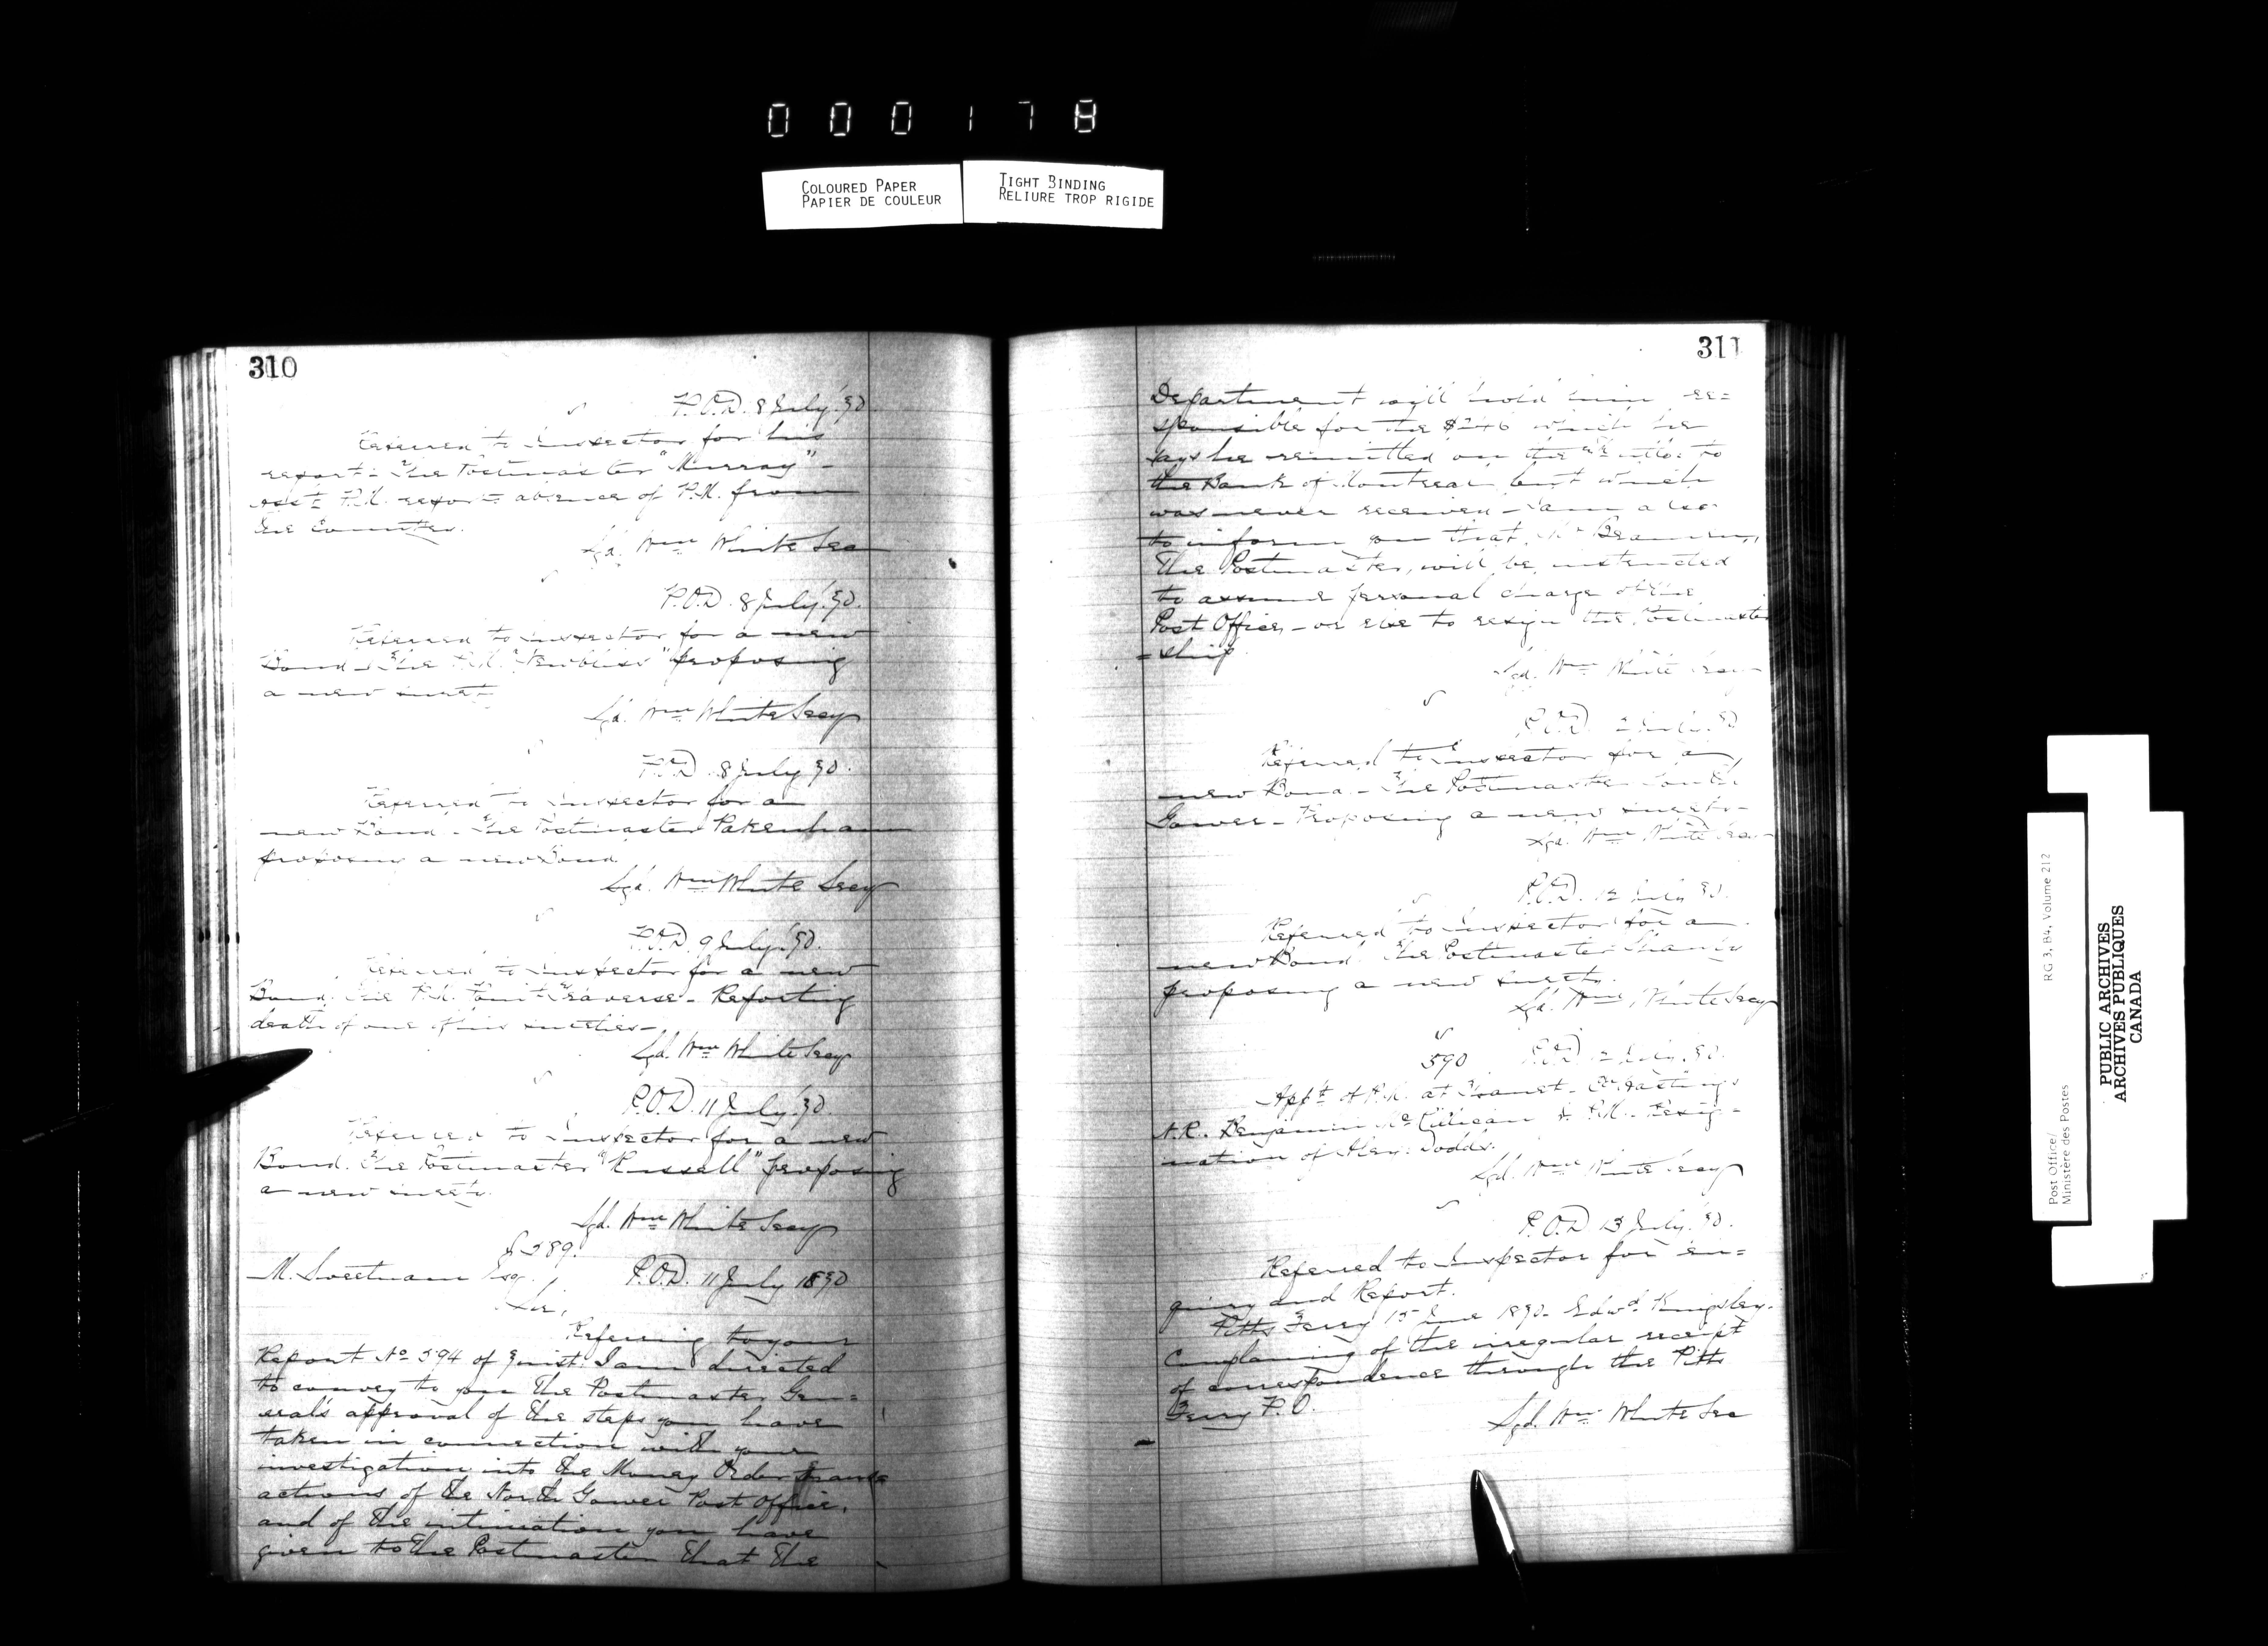 000178
COLOURED PAPER
PAPIER DE COULEUR
TIGHT BINDING
RELIURE TROP RIGIDE
310
P.O.D. 8 July '90
Referred to Inspector for his
report - The Postmaster "Murray" -
Asst P.M. report absence of P.M. from
the Country.
Sgd. Wm White Sec
P.O.D. 8 July '90.
Referred to Inspector for a new
Bond - The P.M. "Newbliss" proposing
a new surety
Sgd. Wm White Secy
P.O.D. 8 July 90.
Referred to Inspector for a
new Bond - The Postmaster Pakenham
proposing a new Bond
Sgd. Wm White Secy
P.O.D. 9 July '90.
Referred to Inspector for a new
Bond. The P.M. Point Traverse - Reporting
death of one of his sureties -
Sgd. Wm White Secy
P.O.D. 11 July '90.
Referred to Inspector for a new
Bond. The Postmaster "Russell" proposing
a new surety.
Sgd. Wm White Secy
589.
M. Sweetnam Esq. P.O.D. 11 July 1890
Sir,
Referring to your
Report No 594 of inst. I am directed
to convey to you the Postmaster Gen=
eral's approval of the steps you have
taken in connection with your
investigation into the Money Order trans
actions of the North Gower Post Office,
and of the intimation you have
given to the Postmaster that the
311
Department will hold him re=
sponsible for the $246 which he
says he remitted on the ulto. to
the Bank of Montreal but which
was never received - I am also
to inform you that Mr
The Postmaster, will be instructed
to assume personal charge of the
Post Office, - or else to resign the Postmaster
=ship
Sgd. Wm White Secy
P.O.D. 12 July. 90
Referred to Inspector for a
new Bond. - The Postmaster South
Gower - Proposing a new surety -
Sgd. Wm White Secy
P.O.D. 12 July 90.
Referred to Inspector for a
new Bond. The Postmaster
proposing a new surety.
Sgd. Wm White Secy
590 P.O.D. 12 July. 90.
Appt of P.M. at Thanet - Co Hastings
N.R. Benjamin Mc P.M. Resig-
nation of Alex. Dodds.
Sgd. Wm White Secy
P.O.D 13 July. '90.
Referred to Inspector for en=
quiry and Report.
Pitts Ferry 15 June 1890 - Edwd Kingsley.
Complaining of the irregular receipt
of correspondence through the Pitts
Ferry P.O.
Sgd. Wm White Sec
Post Office/
Ministère des Postes
RG 3, B4, Volume 212
PUBLIC ARCHIVES
ARCHIVES PUBLIQUES
CANADA